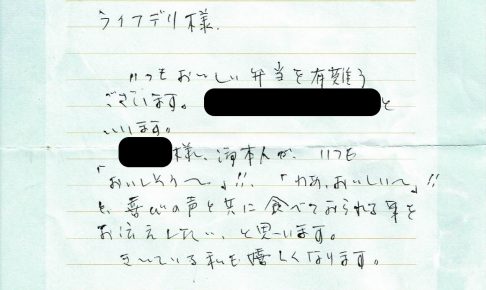 ライフデリ様.
いつもおいしい弁当を有難う
ございます。 と
いいます。
様、御本人が、いつも
「おいしそう～」!!、「わあ、おいしい～」!!
と、喜びの声と共に食べておられる事を
お伝えしたい、と思います。
きいている私も嬉しくなります。